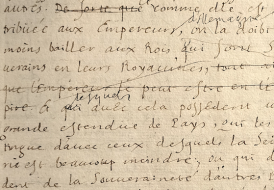 autres. De sorte que comme elle est
d'Allemagne
tribuée aux Empereurs, on la doibt
moins bailler aux Rois qui sont S
uerains en leurs Royaumes, tout
que l'Empereur peut estre en l'E
desquels
& qui auec cela possedent u
grande estendue de Pays que les
tingue d'auec ceux desquels la Sei
rie est beaucoup moindre, ou qui
dent de la Souueraineté d'autres